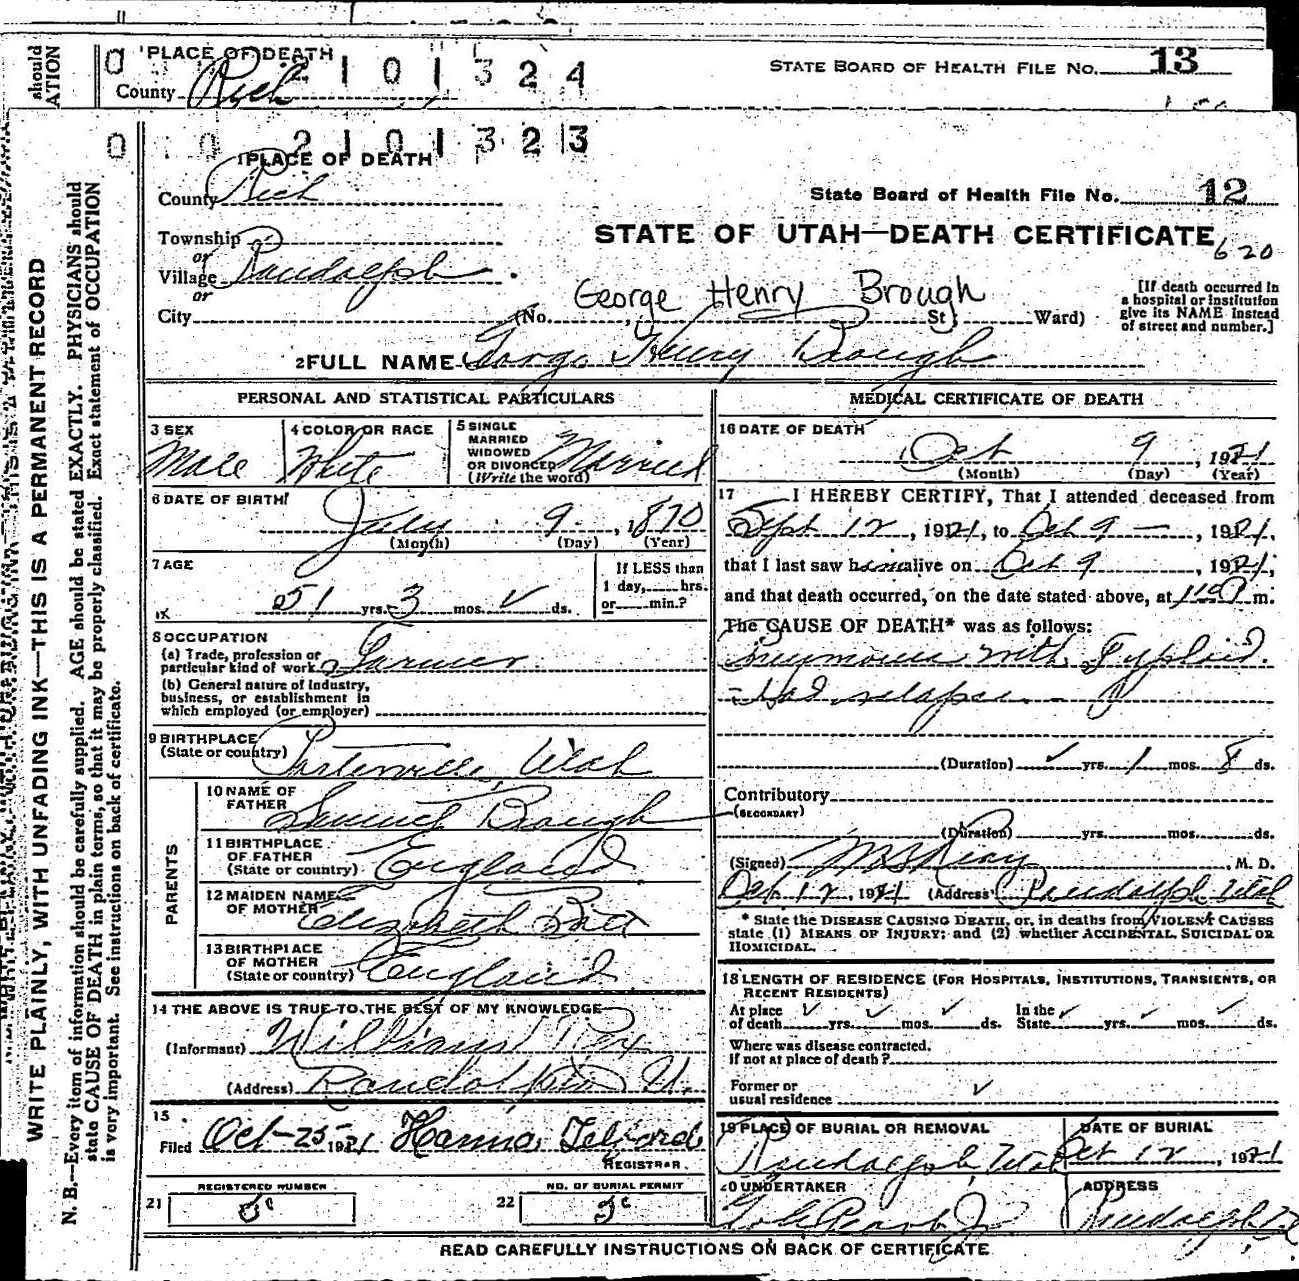 should
ATION
0 2 1 0 1 3 2 4
PLACE OF DEATH
County Rich
STATE BOARD OF HEALTH FILE No. 13
0 0 2 1 0 1 3 2 3
1 PLACE OF DEATH
County Rich
State Board of Health File No. 12
Township
or
Village Randolph
or
City (No. St. Ward)
STATE OF UTAH—DEATH CERTIFICATE
620
George Henry Brough
[If death occurred in
a hospital or institution
give its NAME instead
of street and number.]
2 FULL NAME George Henry Brough
WRITE PLAINLY, WITH UNFADING INK—THIS IS A PERMANENT RECORD
N. B.—Every item of information should be carefully supplied. AGE should be stated EXACTLY. PHYSICIANS should
state CAUSE OF DEATH in plain terms, so that it may be properly classified. Exact statement of OCCUPATION
is very important. See instructions on back of certificate.
PERSONAL AND STATISTICAL PARTICULARS
3 SEX
Male
4 COLOR OR RACE
White
5 SINGLE
MARRIED
WIDOWED
OR DIVORCED
(Write the word)
Married
6 DATE OF BIRTH
July 9, 1870
(Month) (Day) (Year)
7 AGE
51 yrs. 3 mos. ✓ ds.
If LESS than
1 day, hrs.
or min.?
8 OCCUPATION
(a) Trade, profession or
particular kind of work Farmer
(b) General nature of Industry,
business, or establishment in
which employed (or employer)
9 BIRTHPLACE
(State or country)
Porterville, Utah
PARENTS
10 NAME OF
FATHER
Samuel Brough
11 BIRTHPLACE
OF FATHER
(State or country)
England
12 MAIDEN NAME
OF MOTHER
Elizabeth Bott
13 BIRTHPLACE
OF MOTHER
(State or country)
England
14 THE ABOVE IS TRUE TO THE BEST OF MY KNOWLEDGE
(Informant) William Rex
(Address) Randolph U.
15
Filed Oct-25 1921 Hanna Telford
REGISTRAR.
REGISTERED NUMBER
21
NO. OF BURIAL PERMIT
22
MEDICAL CERTIFICATE OF DEATH
16 DATE OF DEATH
Oct 9, 1921
(Month) (Day) (Year)
17 I HEREBY CERTIFY, That I attended deceased from
Sept 12, 1921, to Oct 9, 1921,
that I last saw him alive on Oct 9, 1921,
and that death occurred, on the date stated above, at m.
The CAUSE OF DEATH* was as follows:
with Typhoid.
Had relapse.
(Duration) ✓ yrs. 1 mos. 8 ds.
Contributory
(SECONDARY)
(Duration) yrs. mos. ds.
(Signed) , M. D.
Oct 12, 1921 (Address) Randolph Utah
* State the DISEASE CAUSING DEATH, or, in deaths from VIOLENT CAUSES
state (1) MEANS OF INJURY; and (2) whether ACCIDENTAL, SUICIDAL OR
HOMICIDAL.
18 LENGTH OF RESIDENCE (FOR HOSPITALS, INSTITUTIONS, TRANSIENTS, OR
RECENT RESIDENTS)
At place
of death ✓ yrs. ✓ mos. ✓ ds.
In the
State ✓ yrs. ✓ mos. ✓ ds.
Where was disease contracted,
if not at place of death?
Former or
usual residence ✓
19 PLACE OF BURIAL OR REMOVAL
Randolph, Utah
DATE OF BURIAL
Oct 12, 1921
20 UNDERTAKER
ADDRESS
Randolph
READ CAREFULLY INSTRUCTIONS ON BACK OF CERTIFICATE